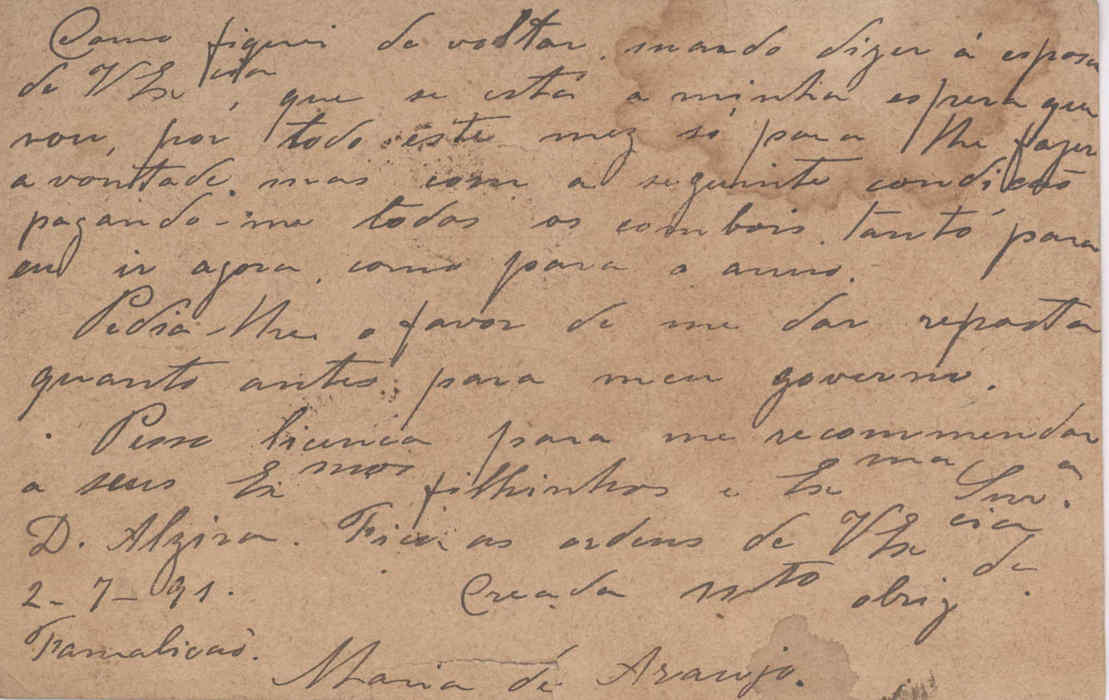 Como fiquei de voltar, mando dizer á esposa
de V Ex.cia, que se está a minha espera que
vou, por todo este mez só para lhe fazer
a vontade, mas com a seguinte condicaõ
pagando-me todos os combois, tantó para
eu ir agora, como para o anno.
Pedia-lhe o favor de me dar reposta
quanto antes, para meu governo.
Pesso licenca para me recommendar
a seus Ex.mos filhinhos e Ex.ma Snr.ª
D. Alzira. Fica as ordens de V Ex.cia
2-7-91. Creada mto obrig.da
Famalicaõ.
Maria de Araujo.